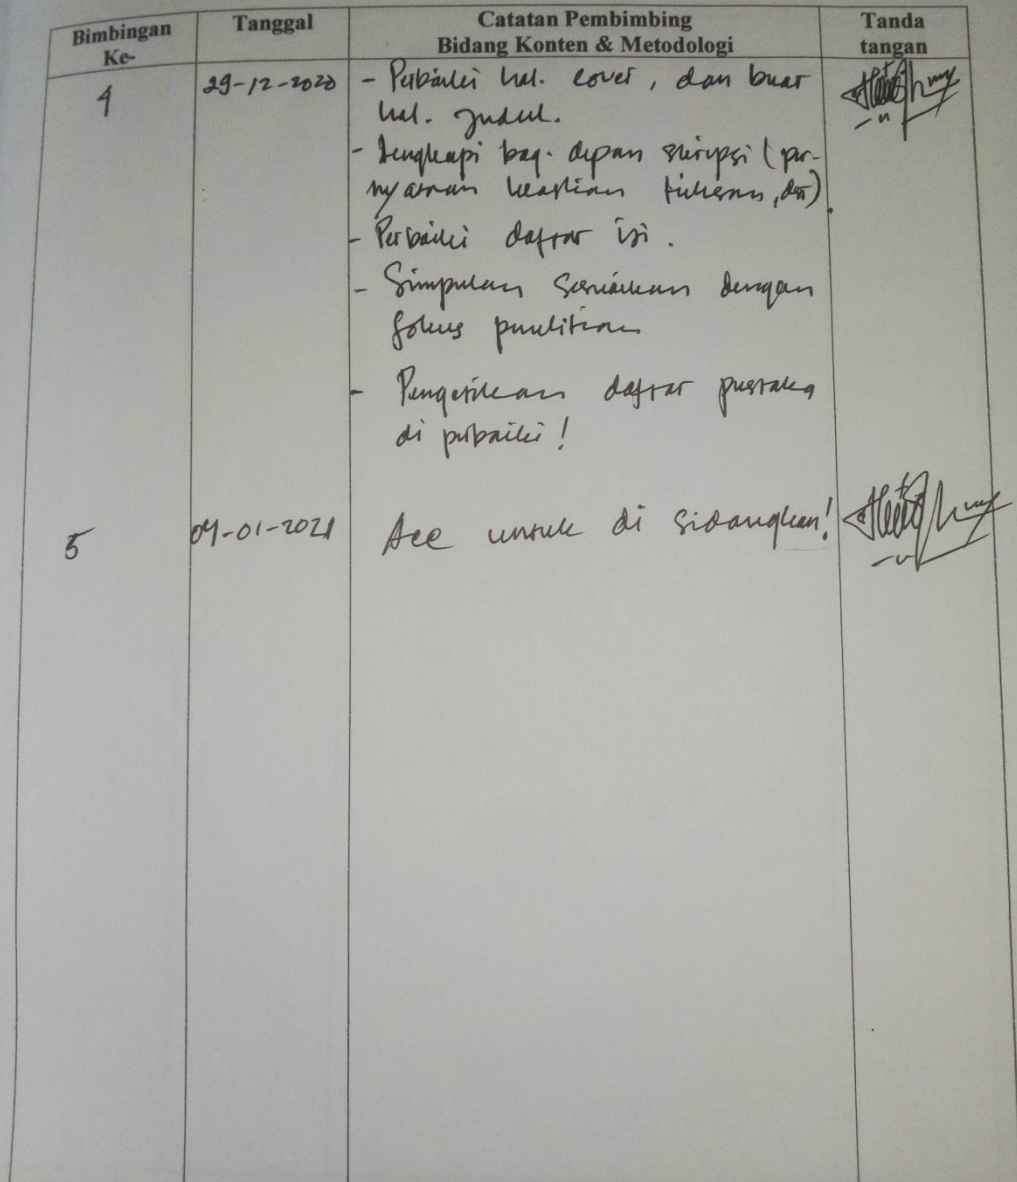 Bimbingan Ke-
Tanggal
Catatan Pembimbing
Bidang Konten & Metodologi
Tanda tangan
4
29-12-2020
- Perbaiki hal. cover, dan buat
hal. judul.
- Lengkapi bag. depan skripsi (per-
nyataan keaslian tulisan, dst).
- Perbaiki daftar isi.
- Simpulan sesuaikan dengan
fokus penelitian
- Pengetikan daftar pustaka
di perbaiki!
5
04-01-2021
Acc untuk di sidangkan!